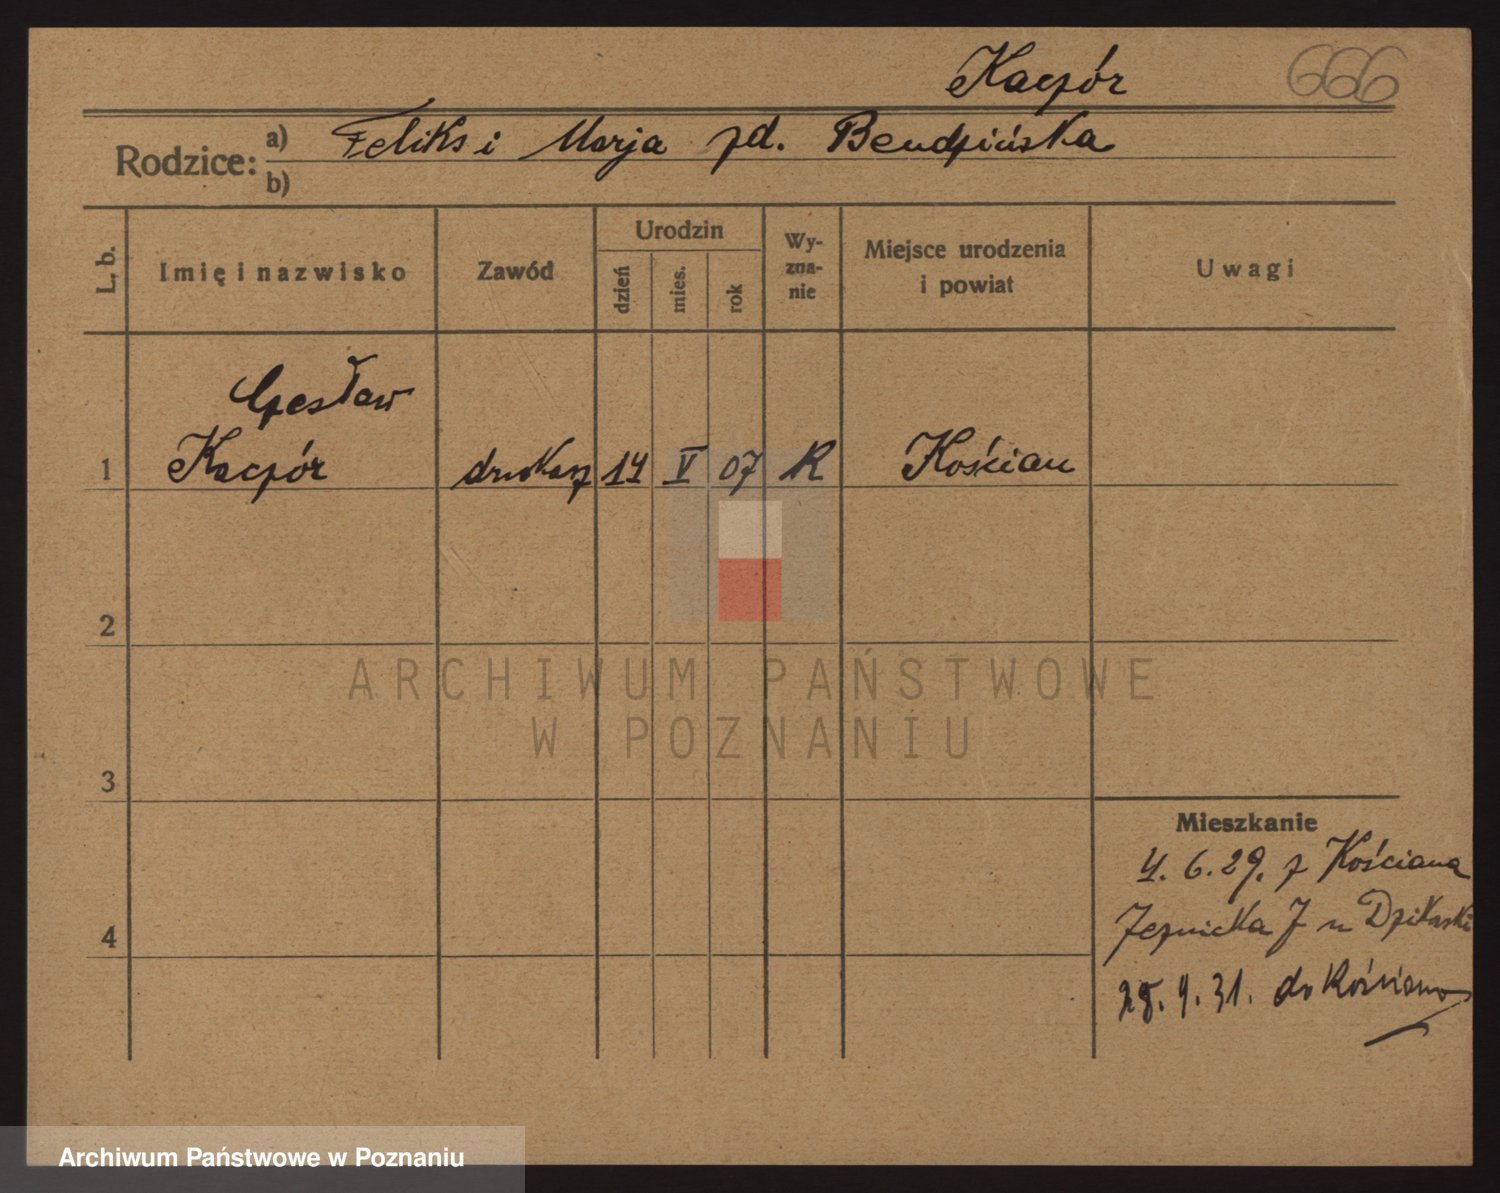 Kaczór 666
Rodzice: a) Feliks i Marja zd. Bendzińska
b)
L. b. Imię i nazwisko Zawód Urodzin dzień mies. rok Wyznanie Miejsce urodzenia i powiat Uwagi
Czesław
1 Kaczór drukarz 14 V 07 R Kościan
2
ARCHIWUM PAŃSTWOWE
W POZNANIU
3
Mieszkanie
4. 6. 29. z Kościana
4 7 u
28. 4. 31. do Kościana
Archiwum Państwowe w Poznaniu